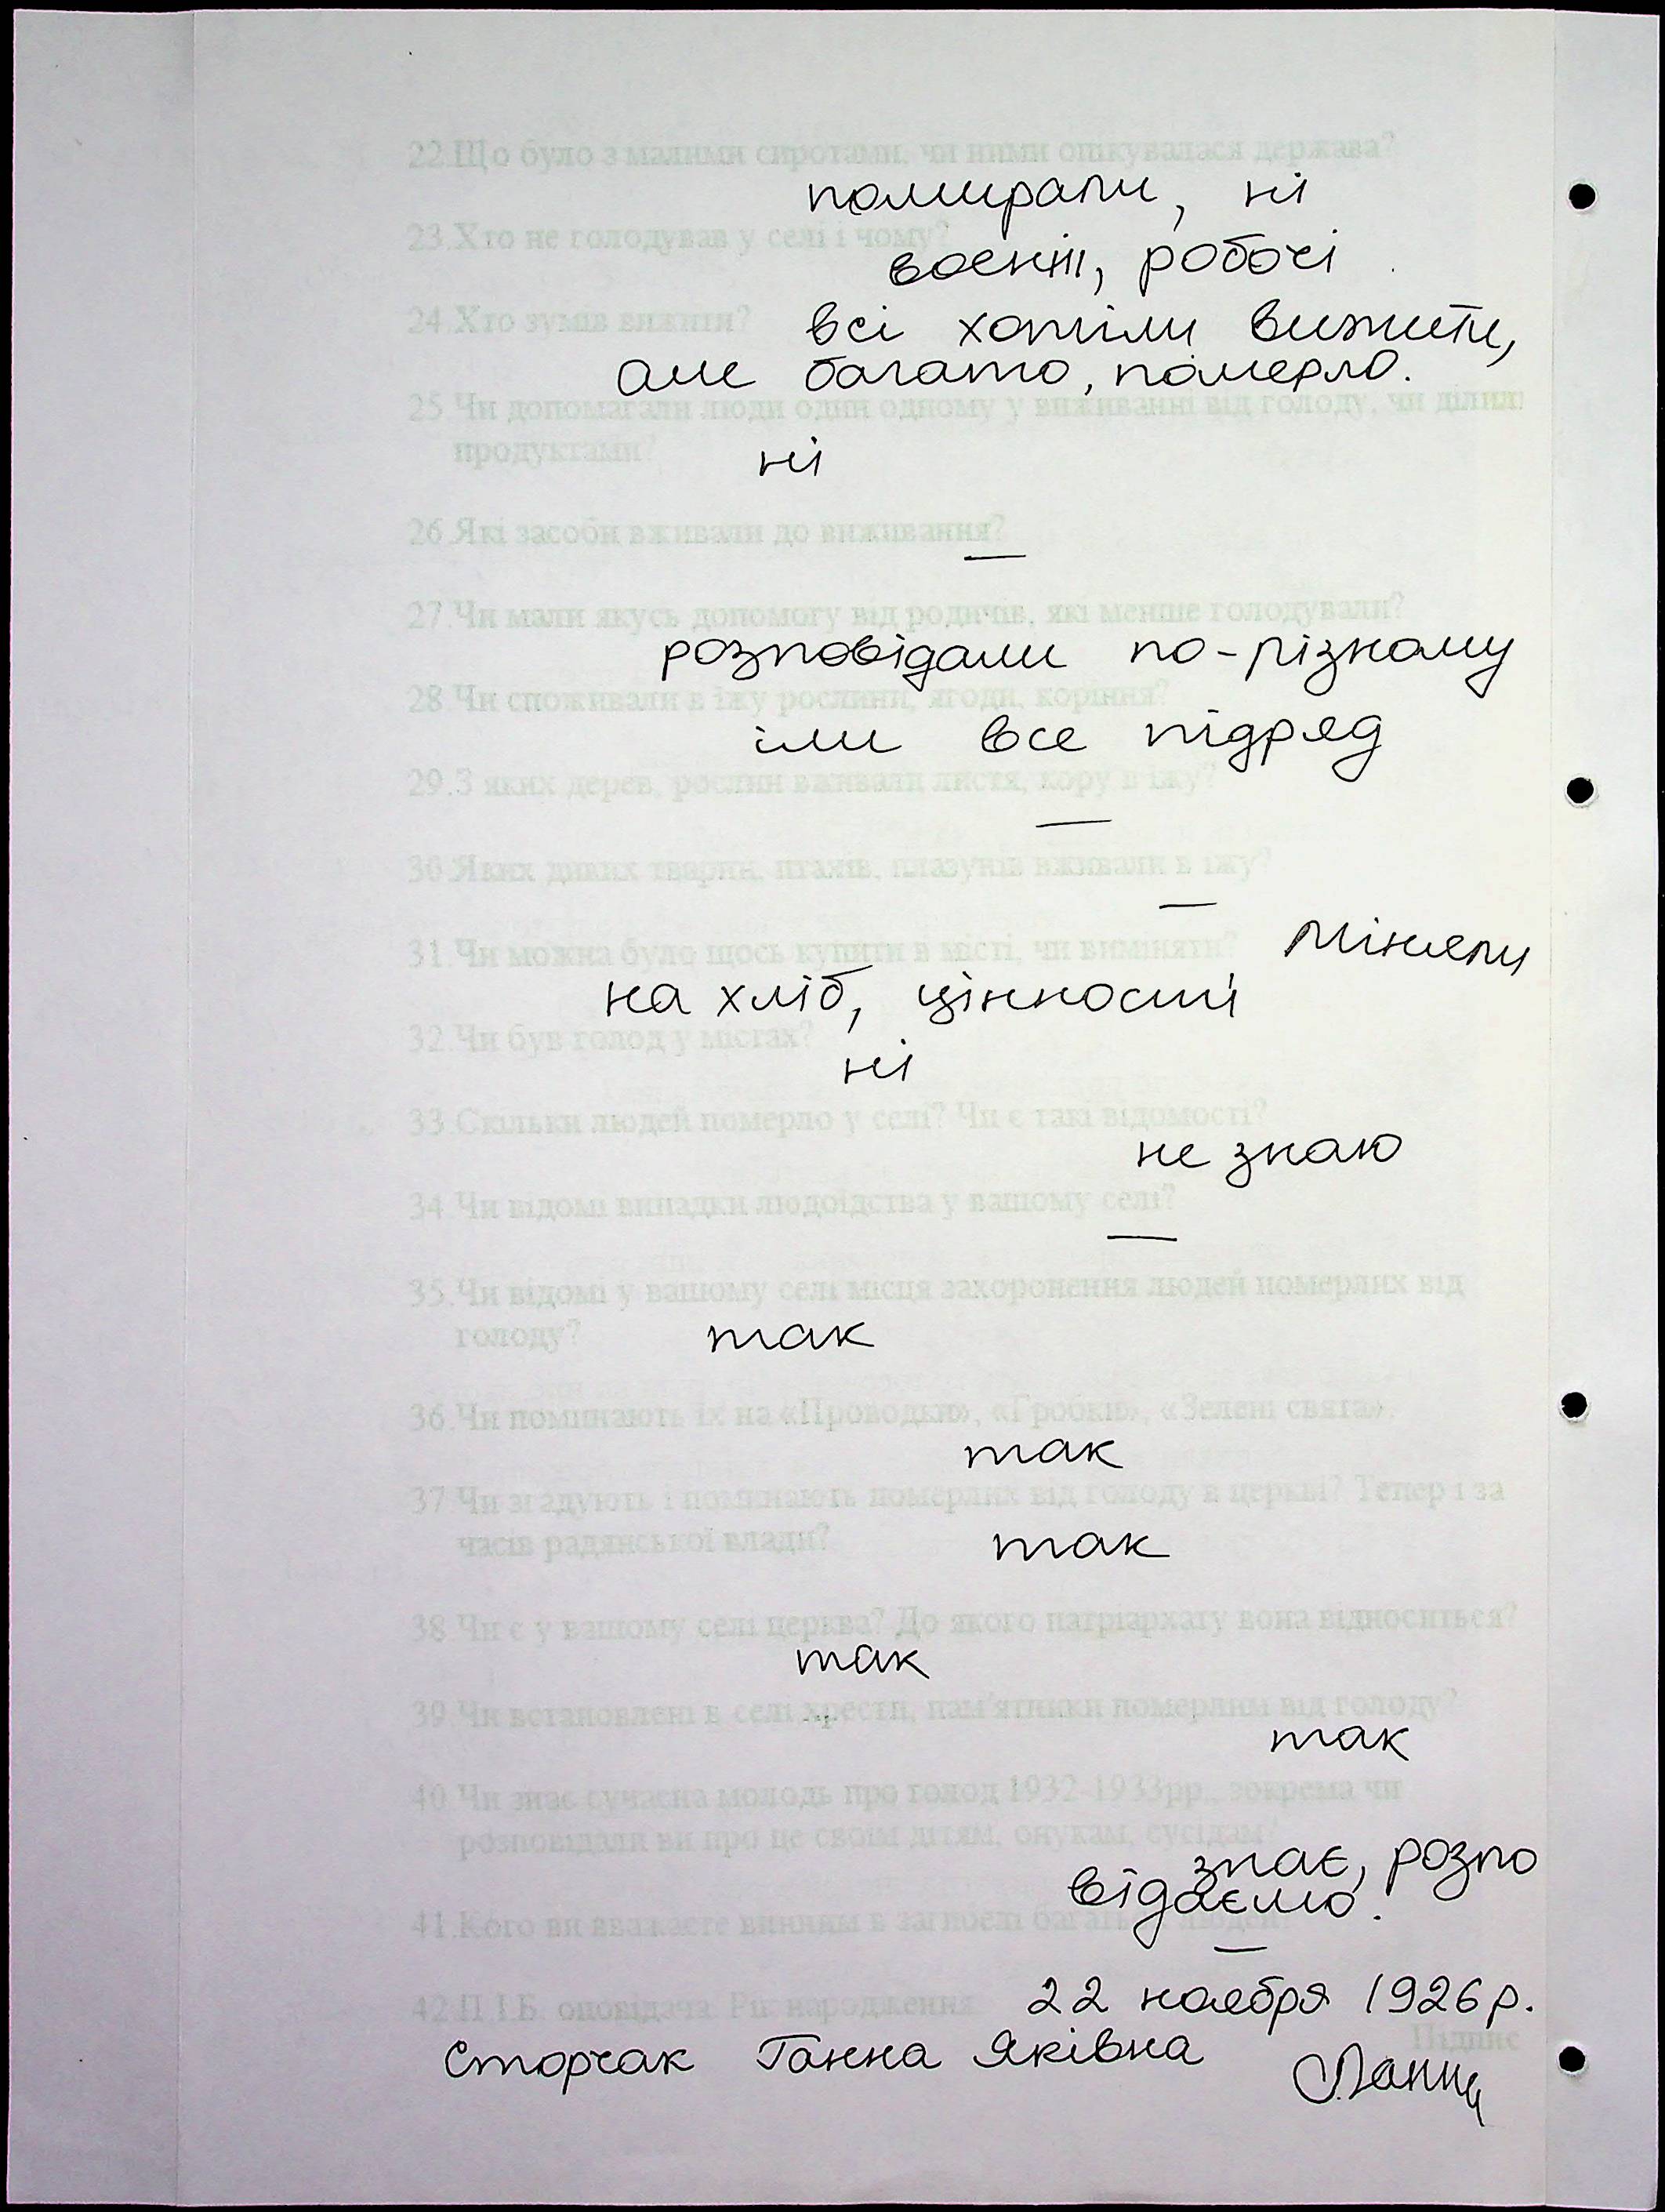 22.Що було з малими сиротами, чи ними опікувалася держава?
помирали, ні
23.Хто не голодував у селі і чому?
воєнні, робочі
24.Хто зумів вижити? всі хотіли вижити,
але багато, померло.
25.Чи допомагали люди один одному у виживанні від голоду, чи ділили
продуктами? ні
26.Які засоби вживали до виживання?
—
27.Чи мали якусь допомогу від родичів, які менше голодували?
розповідали по-різному
28.Чи споживали в їжу рослини, ягоди, коріння?
їли все підряд
29.З яких дерев, рослин вживали листя, кору в їжу?
—
30.Яких диких тварин, птахів, плазунів вживали в їжу?
—
31.Чи можна було щось купити в місті, чи виміняти? міняли
на хліб, цінності
32.Чи був голод у містах?
ні
33.Скільки людей померло у селі? Чи є такі відомості?
не знаю
34.Чи відомі випадки людоїдства у вашому селі?
—
35.Чи відомі у вашому селі місця захоронення людей померлих від
голоду? так
36.Чи поминають їх на «Проводки», «Гробки», «Зелені свята».
так
37.Чи згадують і поминають померлих від голоду в церкві? Тепер і за
часів радянської влади? так
38.Чи є у вашому селі церква? До якого патріархату вона відноситься?
так
39.Чи встановлені в селі хрести, пам'ятники померлим від голоду?
так
40.Чи знає сучасна молодь про голод 1932-1933рр., зокрема чи
розповідали ви про це своїм дітям, онукам, сусідам?
знає, розпо
відаємо.
41.Кого ви вважаєте винним в загибелі багатьох людей?
—
42.П.І.Б. оповідача. Рік народження 22 ноября 1926р.
Підпис
Сторчак Ганна Яківна